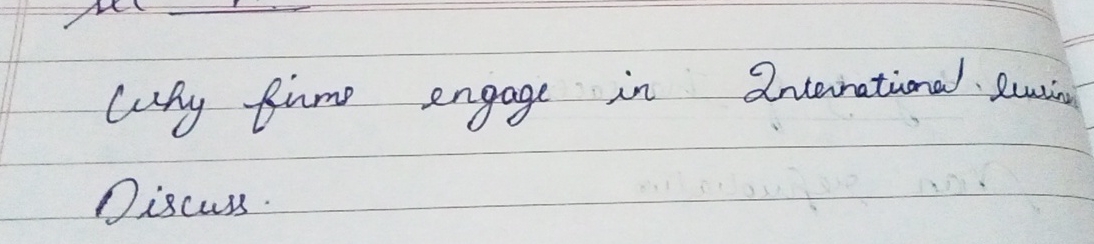 Why firms engage in International
Discuss.